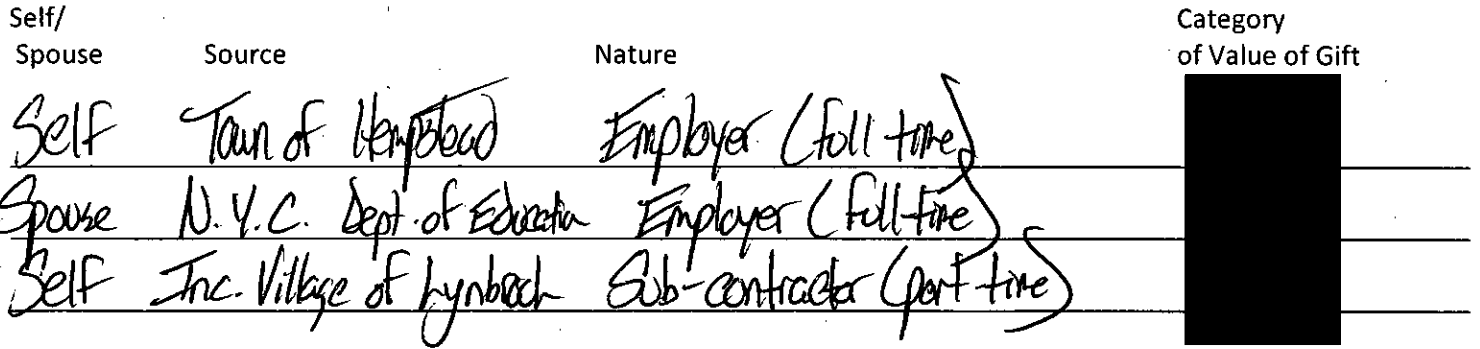 Self/ Category
Spouse Source Nature of Value of Gift
Self Town of Hempstead Employer (full time)
Spouse N.Y.C. Dept. of Education Employer (full-time)
Self Inc. Village of Lynbrook Sub-contractor (part-time)